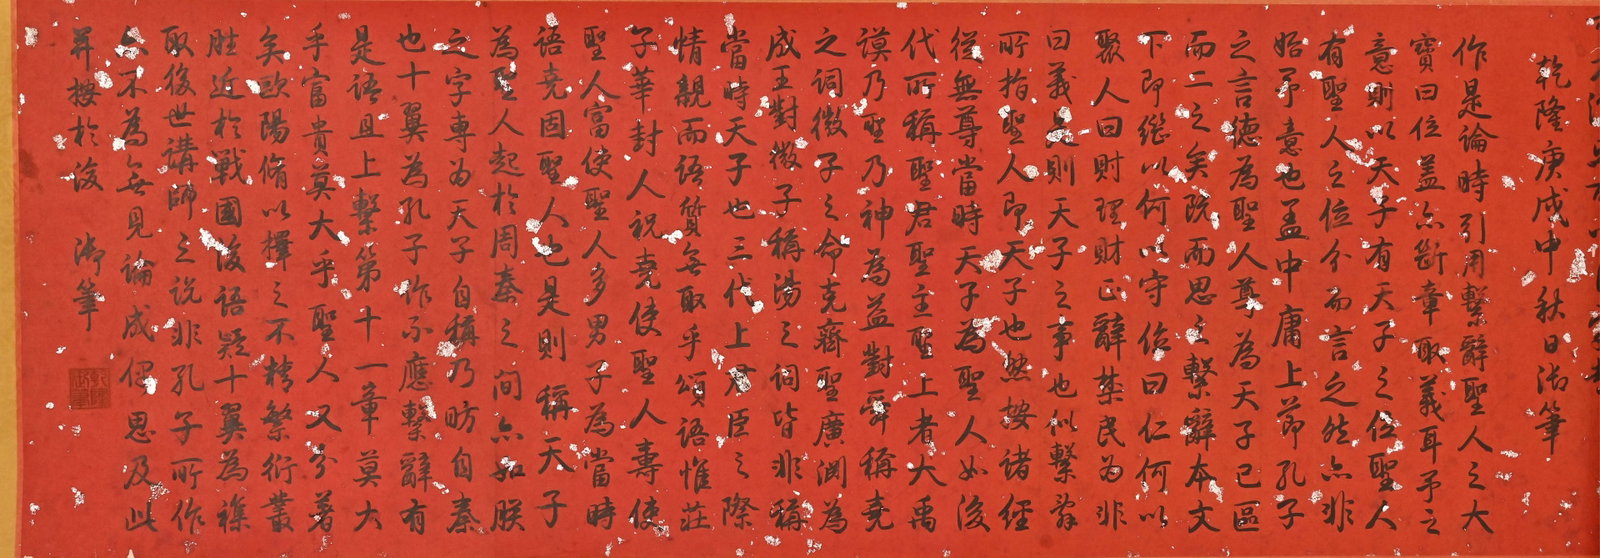 乾隆庚戌中秋日御筆
作是論時引用繫辭聖人之大
寶曰位蓋亦斷章取義耳予之
意則以天子有天子之位聖人
有聖人之位分而言之然亦非
始予意也孟中庸上節孔子
之言德為聖人尊為天子已區
而二之矣既而思之繫辭本文
下即繼以何以守位曰仁何以
聚人曰財理財正辭禁民為非
曰義是則天子之事也似繫辭
所指聖人即天子也然按諸經
從無尊當時天子為聖人如後
代所稱聖君聖主聖上者大禹
謨乃聖乃神為益對舜稱堯
之詞微子之命克齊聖廣淵為
成王對微子稱湯之詞皆非稱
當時天子也三代上君臣之際
情親而語質無取乎頌語惟莊
子華封人祝堯使聖人壽使
聖人富使聖人多男子為當時
語堯固聖人也是則稱天子
為聖人起於周秦之間亦如朕
之字專為天子自稱乃昉自秦
也十翼為孔子作不應繫辭有
是語且上繫第十一章莫大
乎富貴莫大乎聖人又分著
矣歐陽脩以擇之不精繁衍叢
脞近於戰國後語疑十翼為襍
取後世講師之說非孔子所作
亦不為無見論成偶思及此
并按於後 御筆